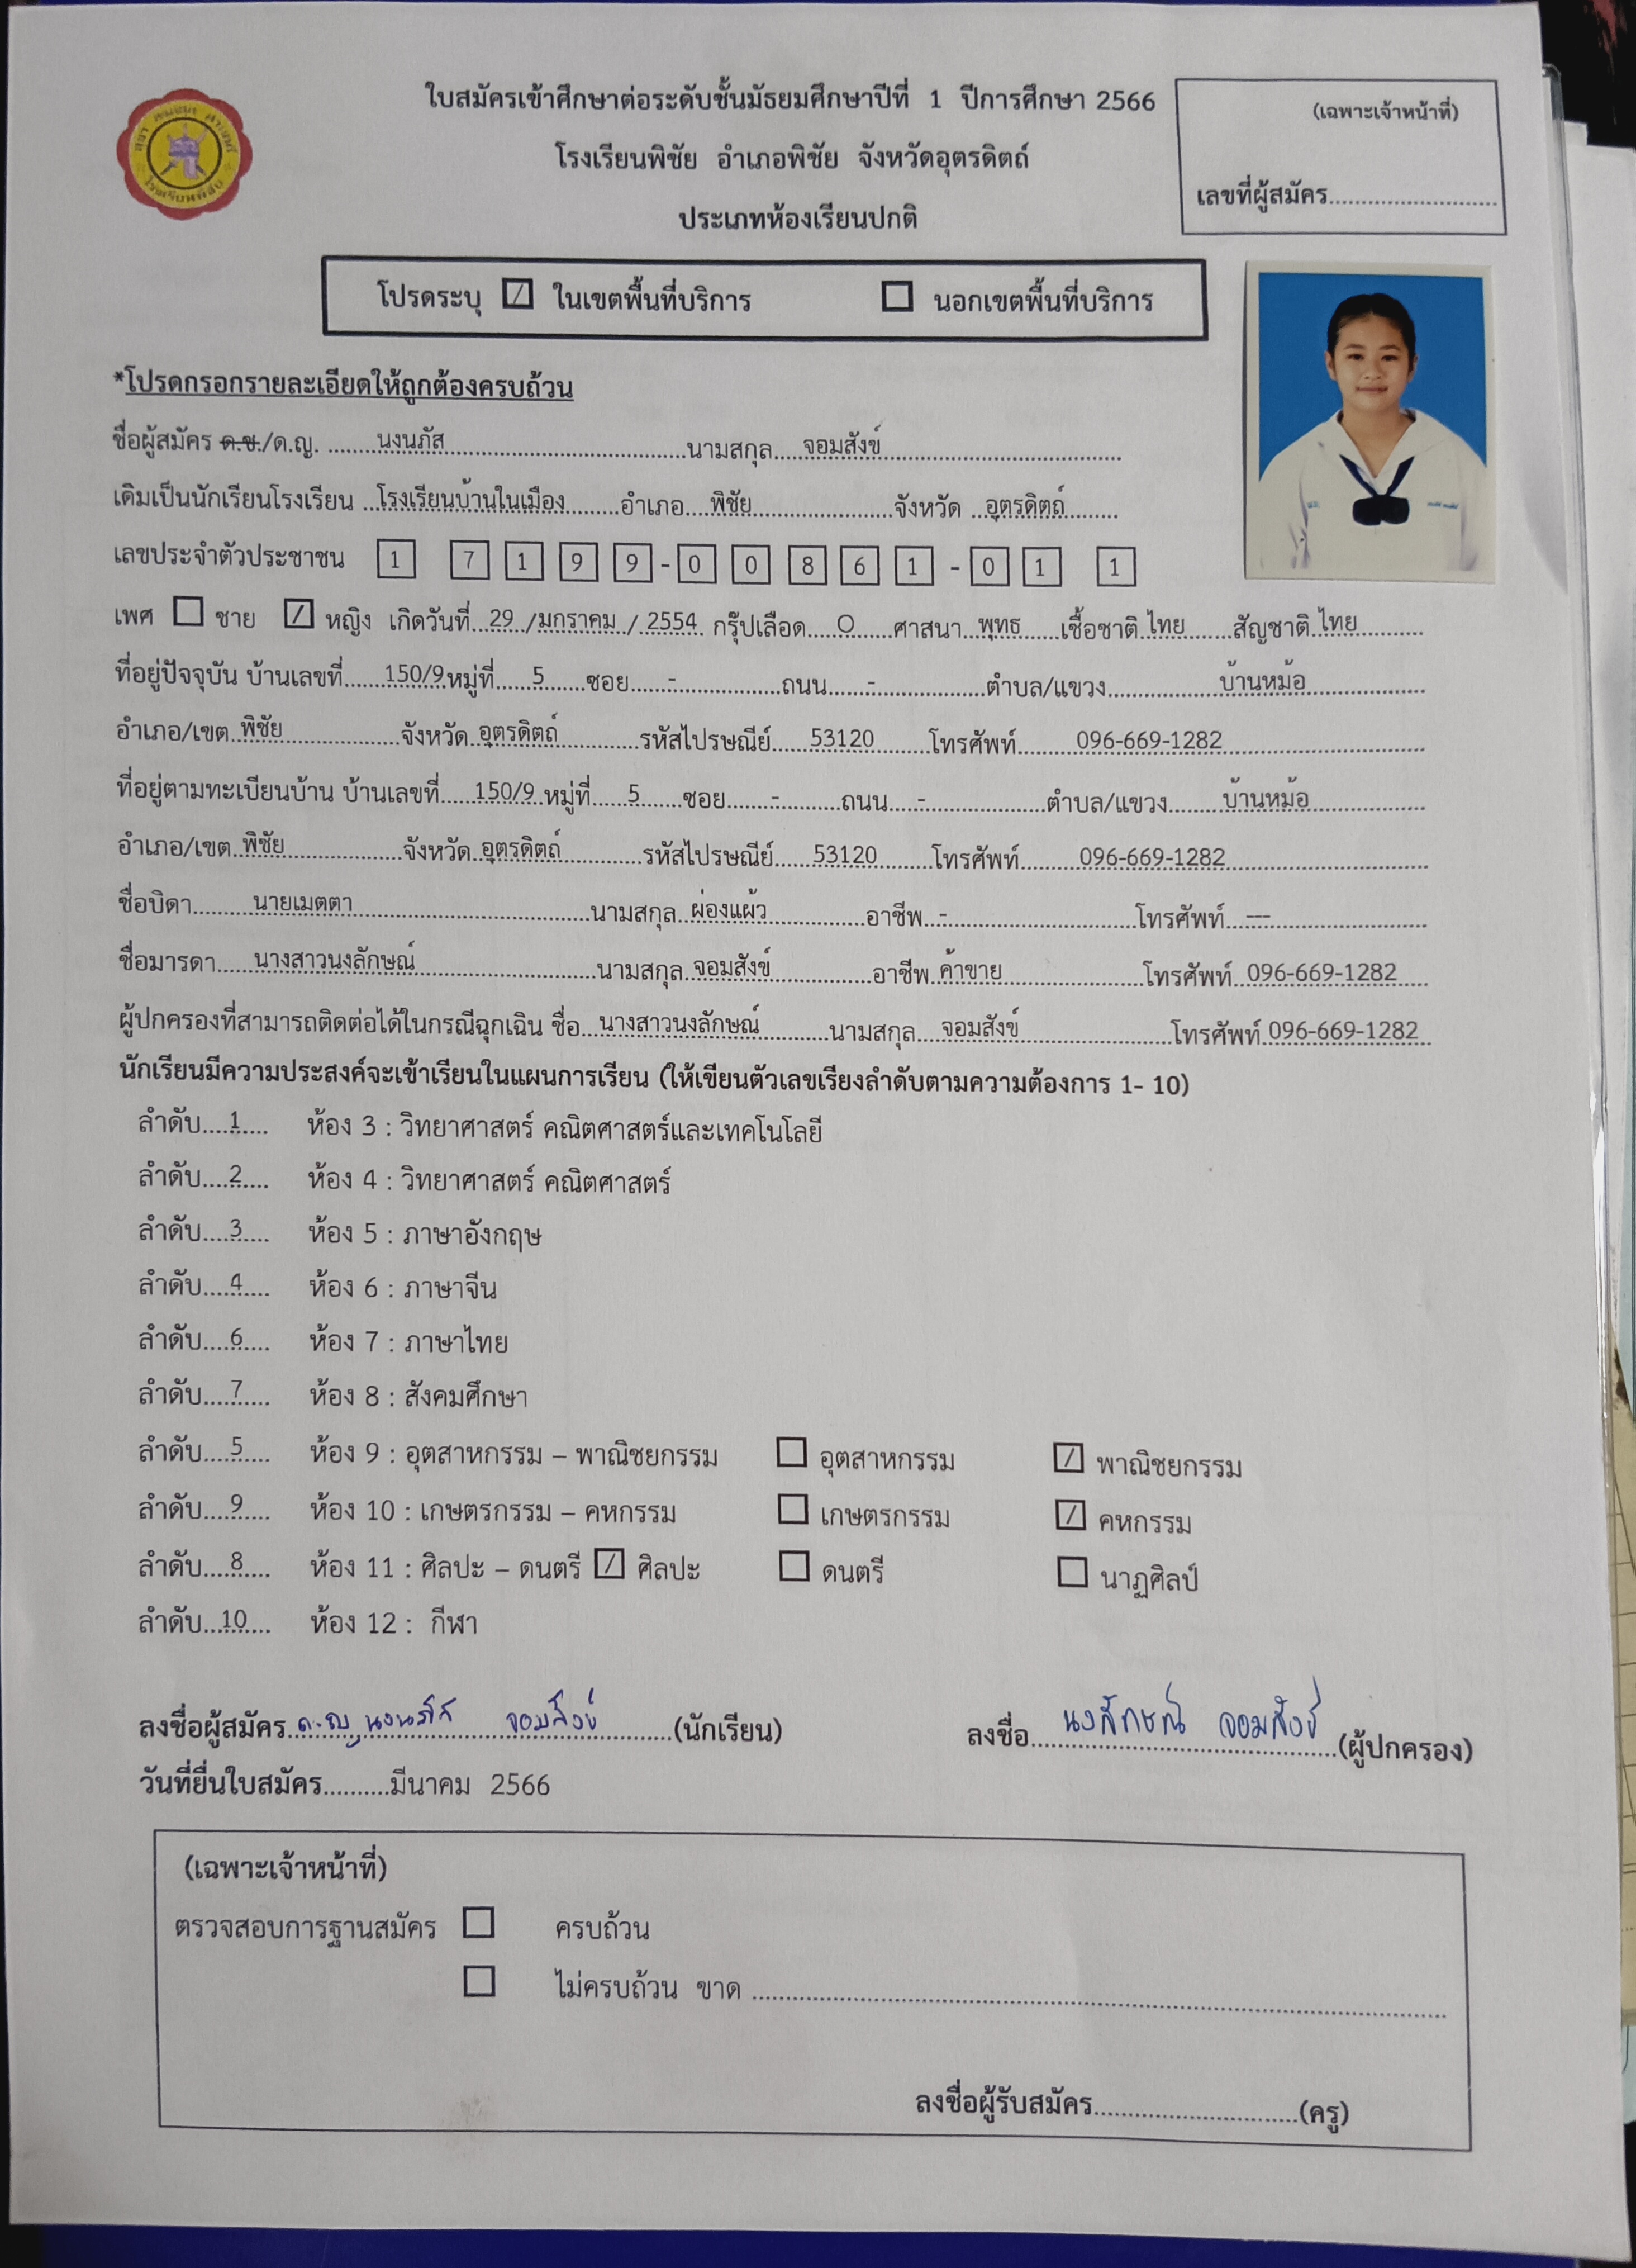 ใบสมัครเข้าศึกษาต่อระดับชั้นมัธยมศึกษาปีที่ 1 ปีการศึกษา 2566
(เฉพาะเจ้าหน้าที่)
โรงเรียนพิชัย อำเภอพิชัย จังหวัดอุตรดิตถ์
เลขที่ผู้สมัคร..........................
ประเภทห้องเรียนปกติ
โปรดระบุ ☑ ในเขตพื้นที่บริการ ☐ นอกเขตพื้นที่บริการ
*โปรดกรอกรายละเอียดให้ถูกต้องครบถ้วน
ชื่อผู้สมัคร ด.ช./ด.ญ. ........นงนภัส........นามสกุล....จอมสังข์........
เดิมเป็นนักเรียนโรงเรียน ..โรงเรียนบ้านในเมือง........อำเภอ....พิชัย........จังหวัด ..อุตรดิตถ์........
เลขประจำตัวประชาชน 1 7 1 9 9 - 0 0 8 6 1 - 0 1 1
เพศ ☐ ชาย ☑ หญิง เกิดวันที่..29 /มกราคม / 2554 กรุ๊ปเลือด....O.....ศาสนา..พุทธ.....เชื้อชาติ.ไทย.......สัญชาติ.ไทย........
ที่อยู่ปัจจุบัน บ้านเลขที่......150/9.หมู่ที่.....5......ซอย.....-........ถนน.....-........ตำบล/แขวง........บ้านหม้อ........
อำเภอ/เขต..พิชัย........จังหวัด..อุตรดิตถ์........รหัสไปรษณีย์.....53120........โทรศัพท์........096-669-1282........
ที่อยู่ตามทะเบียนบ้าน บ้านเลขที่.....150/9..หมู่ที่.....5......ซอย......-........ถนน....-........ตำบล/แขวง........บ้านหม้อ........
อำเภอ/เขต..พิชัย........จังหวัด..อุตรดิตถ์........รหัสไปรษณีย์.....53120........โทรศัพท์........096-669-1282........
ชื่อบิดา........นายเมตตา........นามสกุล..ผ่องแผ้ว........อาชีพ..-........โทรศัพท์...---........
ชื่อมารดา.....นางสาวนงลักษณ์........นามสกุล..จอมสังข์........อาชีพ..ค้าขาย........โทรศัพท์..096-669-1282....
ผู้ปกครองที่สามารถติดต่อได้ในกรณีฉุกเฉิน ชื่อ...นางสาวนงลักษณ์........นามสกุล....จอมสังข์........โทรศัพท์.096-669-1282..
นักเรียนมีความประสงค์จะเข้าเรียนในแผนการเรียน (ให้เขียนตัวเลขเรียงลำดับตามความต้องการ 1- 10)
ลำดับ....1.... ห้อง 3 : วิทยาศาสตร์ คณิตศาสตร์และเทคโนโลยี
ลำดับ....2.... ห้อง 4 : วิทยาศาสตร์ คณิตศาสตร์
ลำดับ....3.... ห้อง 5 : ภาษาอังกฤษ
ลำดับ....4.... ห้อง 6 : ภาษาจีน
ลำดับ....6.... ห้อง 7 : ภาษาไทย
ลำดับ....7.... ห้อง 8 : สังคมศึกษา
ลำดับ....5.... ห้อง 9 : อุตสาหกรรม – พาณิชยกรรม ☐ อุตสาหกรรม ☑ พาณิชยกรรม
ลำดับ....9.... ห้อง 10 : เกษตรกรรม – คหกรรม ☐ เกษตรกรรม ☑ คหกรรม
ลำดับ....8.... ห้อง 11 : ศิลปะ – ดนตรี ☑ ศิลปะ ☐ ดนตรี ☐ นาฏศิลป์
ลำดับ...10.... ห้อง 12 : กีฬา
ลงชื่อผู้สมัคร..ด.ญ นงนภัส จอมสังข์........(นักเรียน) ลงชื่อ....นงลักษณ์ จอมสังข์....(ผู้ปกครอง)
วันที่ยื่นใบสมัคร..........มีนาคม 2566
(เฉพาะเจ้าหน้าที่)
ตรวจสอบการฐานสมัคร ☐ ครบถ้วน
☐ ไม่ครบถ้วน ขาด ........................................
ลงชื่อผู้รับสมัคร..............................(ครู)